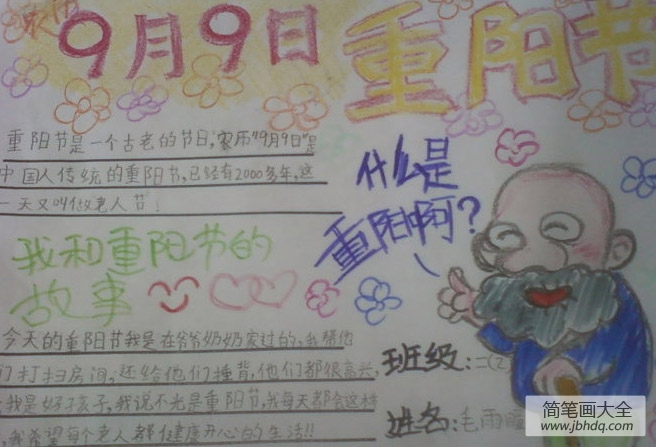 农历
9月9日
重阳节
重阳节是一个古老的节日,农历"9月9日"是
中国人传统的重阳节,已经有2000多年,这
一天又叫做老人节!
什么是
重阳啊?
我和重阳节的
故事
今天的重阳节我是在爷爷奶奶家过的,我帮他
们打扫房间,还给他们捶背,他们都很高兴,
我是好孩子,我说不光是重阳节,我每天都会这样
,我希望每个老人都健康开心的生活!!
班级:二(2
姓名:毛雨
简笔画大全
www.jbhdq.com